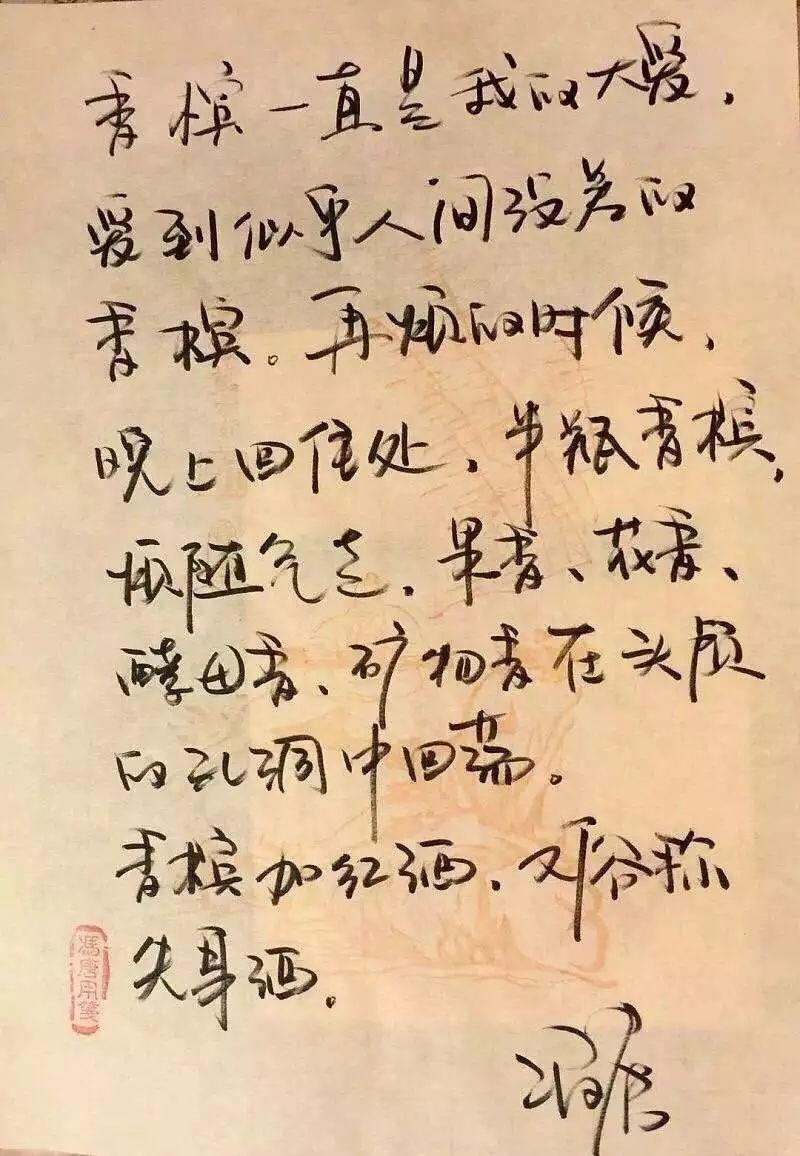 香槟一直是我的大爱，
爱到似乎人间没差的
香槟。再烦的时候，
晚上回住处，半瓶香槟，
烦随气走，果香、花香、
酵母香、矿物香在头颅
的孔洞中回荡。
香槟加红酒，又俗称
失身酒。
馮唐用箋
冯唐